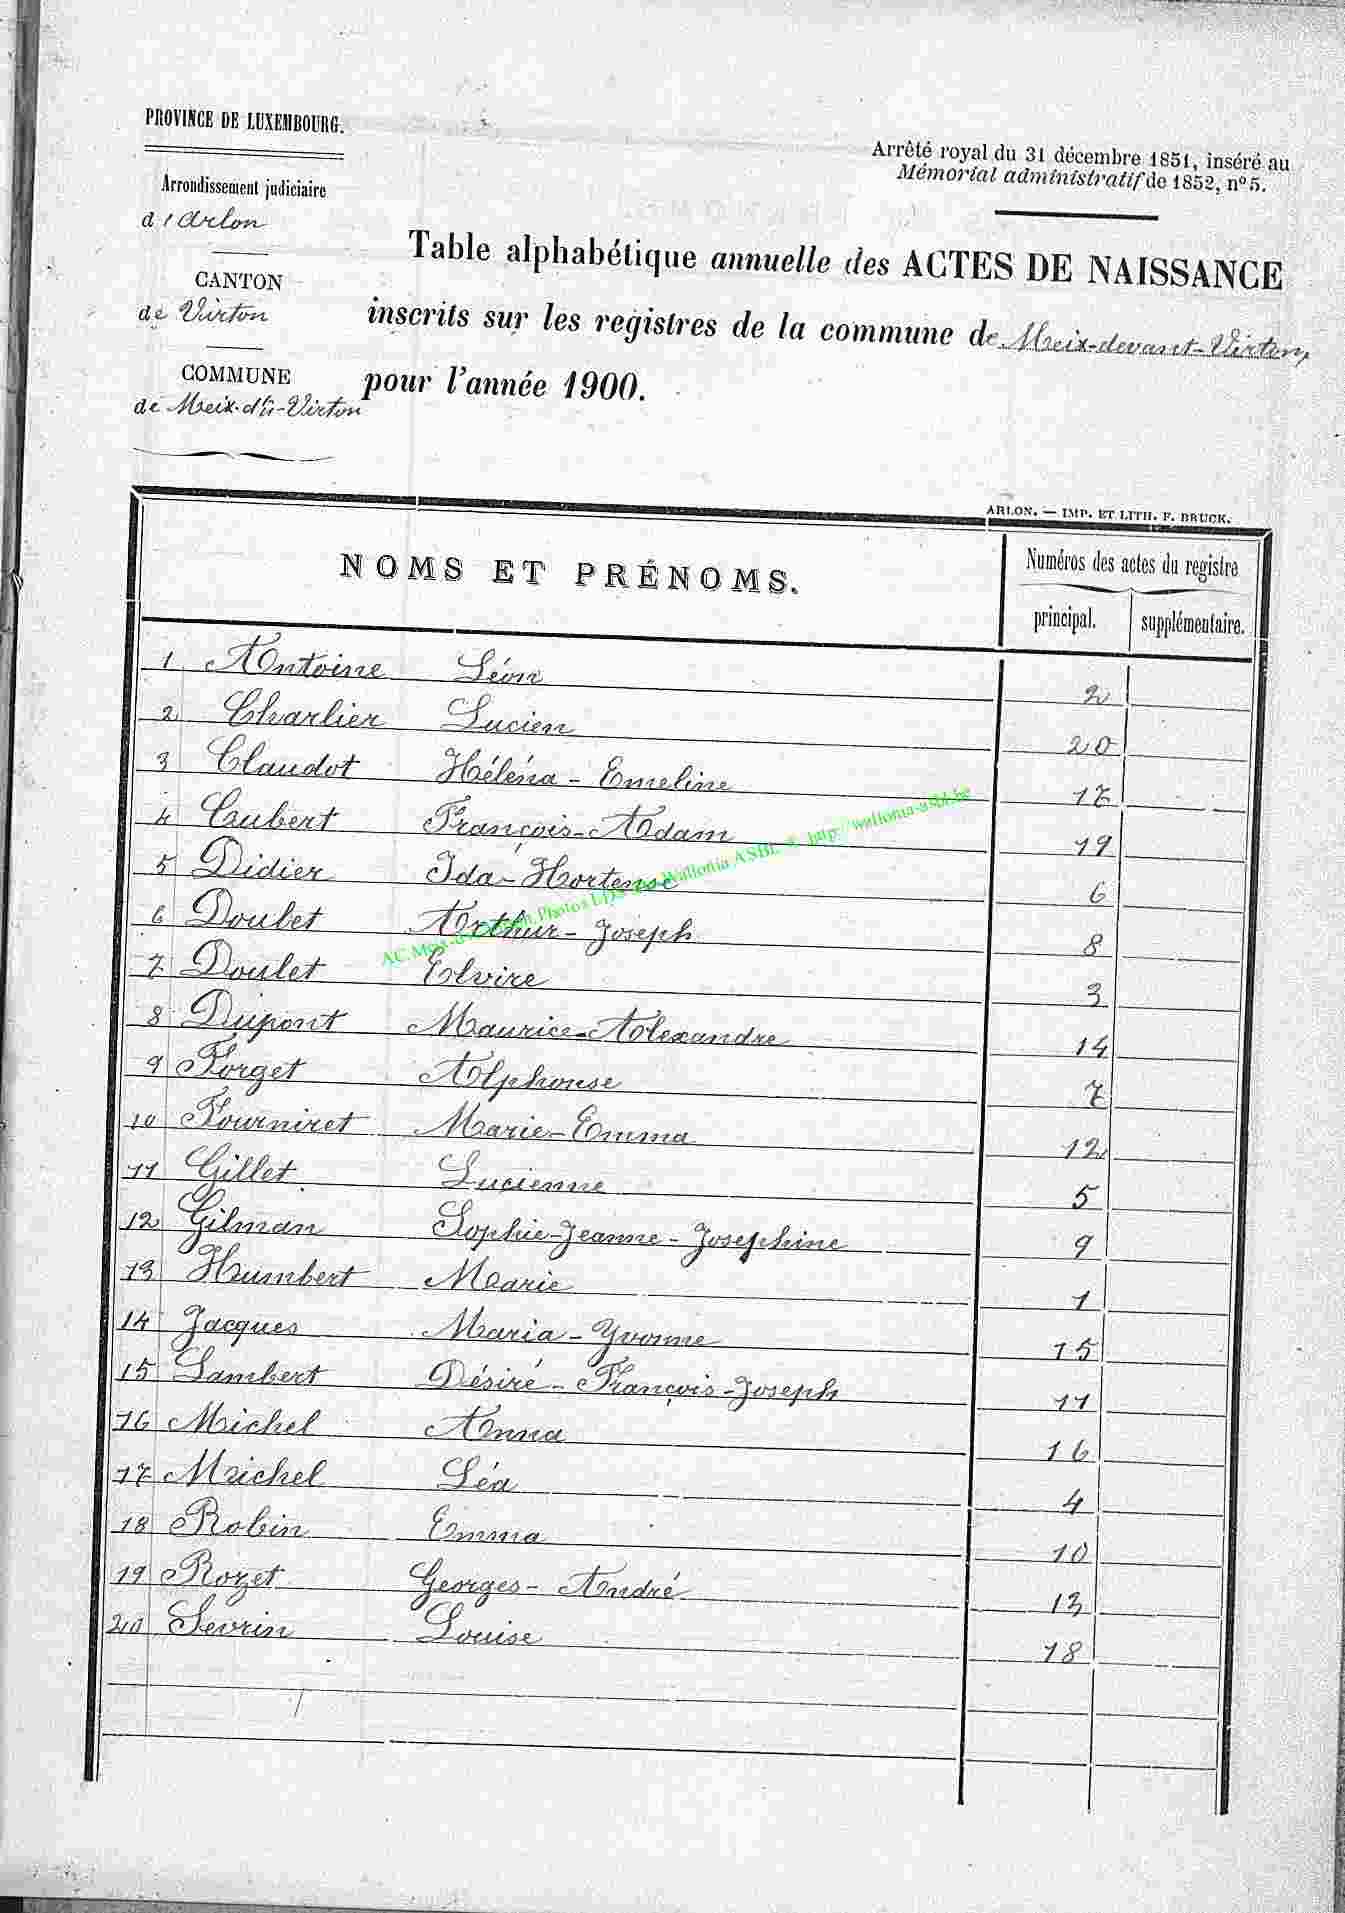 PROVINCE DE LUXEMBOURG.
Arrondissement judiciaire
d'Arlon
CANTON
de Virton
COMMUNE
de Meix-dt-Virton
Arrêté royal du 31 décembre 1851, inséré au
Mémorial administratif de 1852, n° 5.
Table alphabétique annuelle des ACTES DE NAISSANCE
inscrits sur les registres de la commune de Meix-devant-Virton,
pour l'année 1900.
ARLON. — IMP. ET LITH. F. BRUCK.
NOMS ET PRÉNOMS. Numéros des actes du registre
principal. supplémentaire.
1 Antoine Léon 2
2 Charlier Lucien 20
3 Claudot Héléna-Emeline 17
4 Cubert François-Adam 19
5 Didier Ida-Hortense 6
6 Doubet Arthur-Joseph 8
7 Doulet Elvire 3
8 Dupont Maurice-Alexandre 14
9 Forget Alphonse 7
10 Fourniret Marie-Emma 12
11 Gillet Lucienne 5
12 Gilman Sophie-Jeanne-Josephine 9
13 Humbert Marie 1
14 Jacques Maria-Yvonne 15
15 Lambert Désiré-François-Joseph 11
16 Michel Anna 16
17 Michel Léa 4
18 Robin Emma 10
19 Rozet Georges-André 13
20 Sevrin Louise 18
Photos LDS Wallonia ASBL © http://wallonia-asbl.be